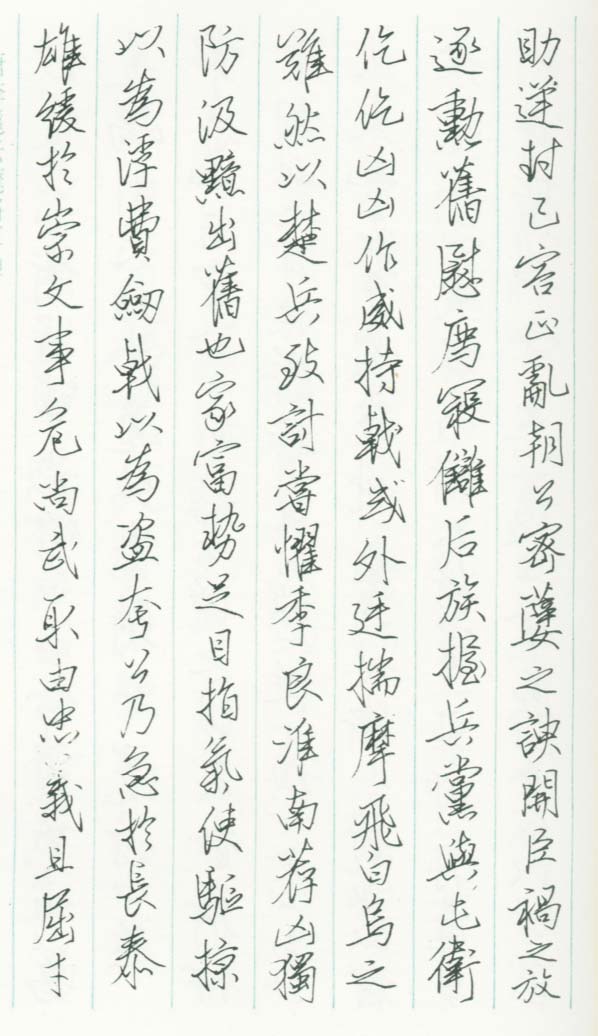 助逆封己害正亂朝公密之開臣禍之放
逐勳舊慰薦寇讎后族握兵黨與屯衛
仡仡凶凶作威持戟或外廷揣摩飛白烏之
雖然以楚兵致討嘗懼季良淮南荐凶獨
防汲黯出舊也家富勢足目指氣使驅掠
以為浮費劒戟以為盜夸公乃急於長泰
雄緩於崇文事危尚武取由忠義且屈才